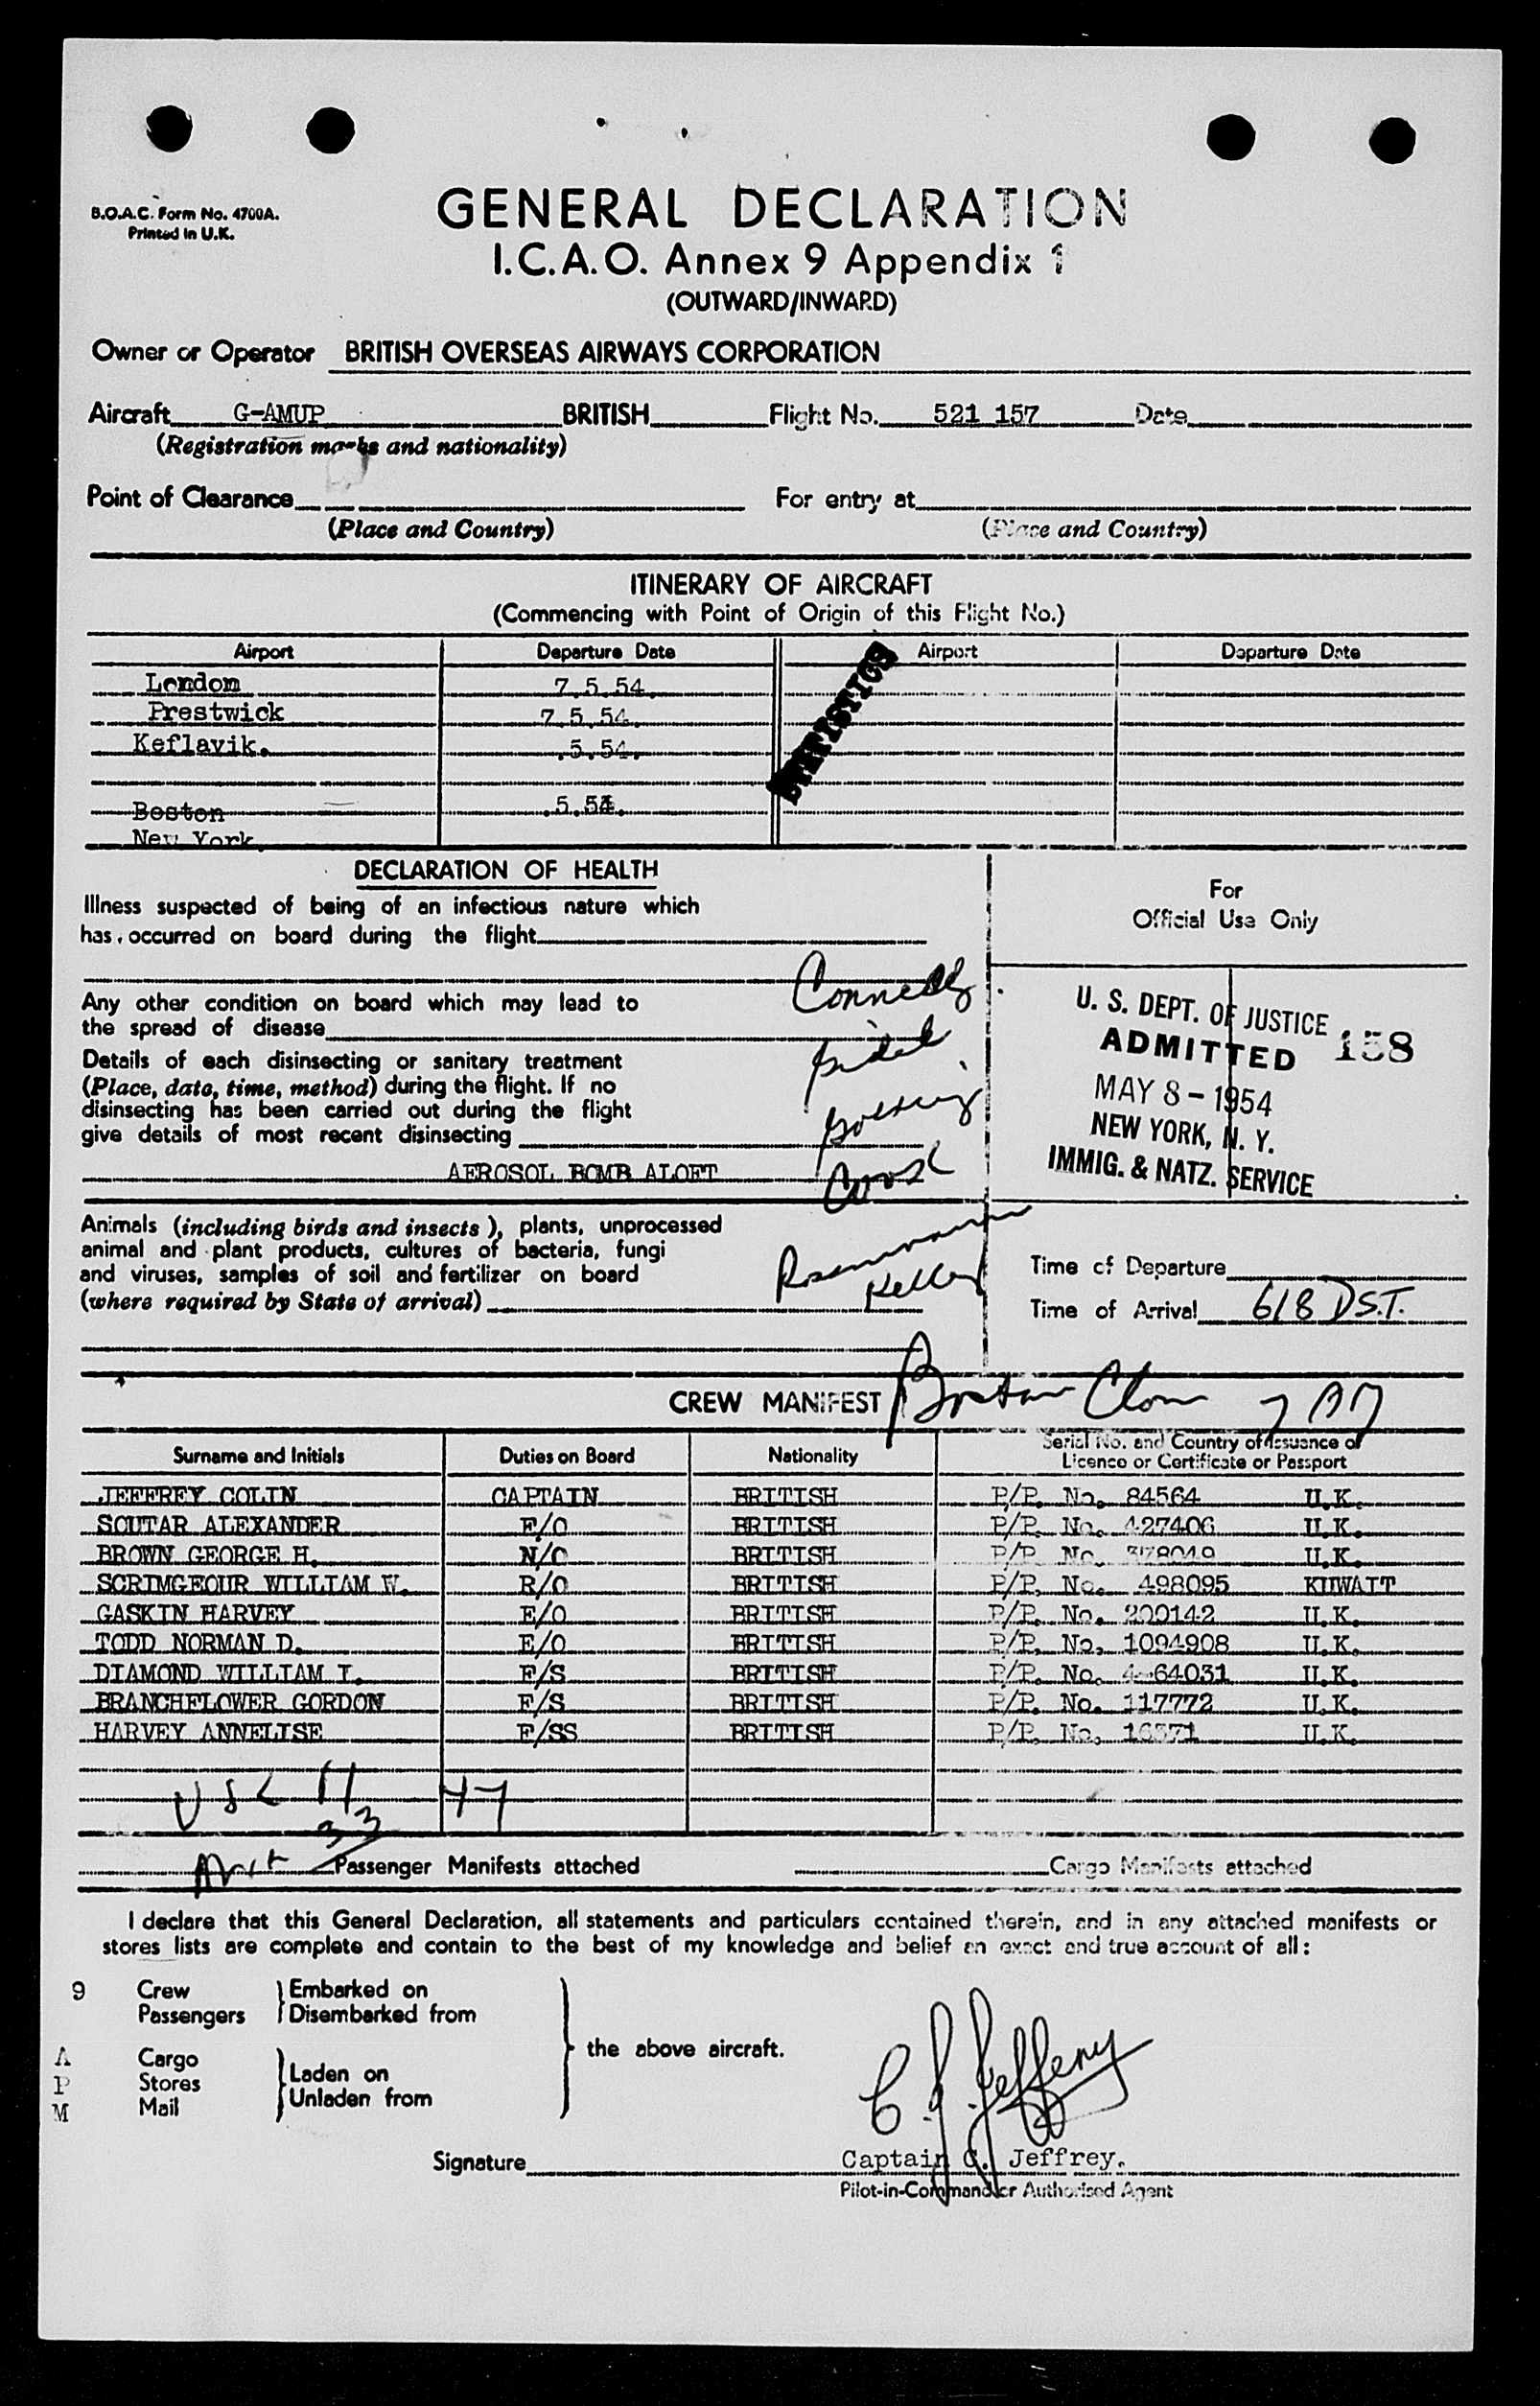 B.O.A.C. Form No. 4700A.
Printed in U.K.
GENERAL DECLARATION
I.C.A.O. Annex 9 Appendix 1
(OUTWARD/INWARD)
Owner or Operator BRITISH OVERSEAS AIRWAYS CORPORATION
Aircraft G-AMUP BRITISH Flight No. 521 157 Date
(Registration marks and nationality)
Point of Clearance For entry at
(Place and Country) (Place and Country)
ITINERARY OF AIRCRAFT
(Commencing with Point of Origin of this Flight No.)
Airport Departure Date Airport Departure Date
London 7.5.54.
Prestwick 7.5.54.
Keflavik. .5.54.
STATISTICS
Boston .5.54.
New York
DECLARATION OF HEALTH
Illness suspected of being of an infectious nature which
has occurred on board during the flight
For
Official Use Only
Any other condition on board which may lead to
the spread of disease
Details of each disinsecting or sanitary treatment
(Place, date, time, method) during the flight. If no
disinsecting has been carried out during the flight
give details of most recent disinsecting
AEROSOL BOMB ALOFT
Kelley
U. S. DEPT. OF JUSTICE
ADMITTED 158
MAY 8 - 1954
NEW YORK, N. Y.
IMMIG. & NATZ. SERVICE
Animals (including birds and insects), plants, unprocessed
animal and plant products, cultures of bacteria, fungi
and viruses, samples of soil and fertilizer on board
(where required by State of arrival)
Time of Departure
Time of Arrival 618 DS.T.
CREW MANIFEST Boston
Surname and Initials Duties on Board Nationality Serial No. and Country of Issuance of
Licence or Certificate or Passport
JEFFREY COLIN CAPTAIN BRITISH P/P. No. 84564 U.K.
SOUTAR ALEXANDER F/O BRITISH P/P. No. 427406 U.K.
BROWN GEORGE H. N/O BRITISH P/P No. 378049 U.K.
SCRIMGEOUR WILLIAM W. R/O BRITISH P/P. No. 498095 KUWAIT
GASKIN HARVEY E/O BRITISH P/P. No. 200142 U.K.
TODD NORMAN D. E/O BRITISH P/P. No. 1094908 U.K.
DIAMOND WILLIAM I. F/S BRITISH P/P. No. 64031 U.K.
BRANCHFLOWER GORDON F/S BRITISH P/P. No. 117772 U.K.
HARVEY ANNELISE F/SS BRITISH P/P. No. U.K.
USC 11 47
33
Passenger Manifests attached Cargo Manifests attached
I declare that this General Declaration, all statements and particulars contained therein, and in any attached manifests or
stores lists are complete and contain to the best of my knowledge and belief an exact and true account of all:
9 Crew Embarked on
Passengers Disembarked from
the above aircraft.
A Cargo
P Stores Laden on
M Mail Unladen from
C. J. Jeffery
Signature Captain C. Jeffrey.
Pilot-in-Command or Authorised Agent